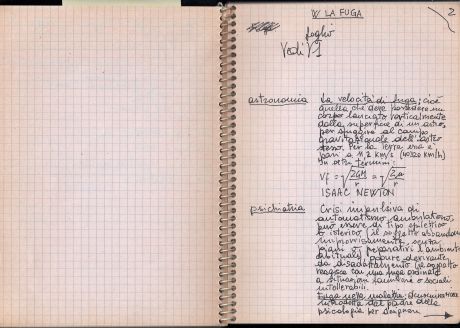 2
V/ LA FUGA
foglio
Vedi V1
astronomia La velocità di fuga; cioè
quella che deve possedere un
corpo lanciato verticalmente
dalla superficie di un astro,
per sfuggire al campo
gravitazionale dell'astro
stesso. Per la Terra essa è
pari a 11,2 km/s (40320 km/h)
In altri termini:
Vf = √2GM/r = √2
ISAAC NEWTON
psichiatria Crisi impulsiva di
automatismo ambulatorio,
può essere di tipo epilettico
o isterico (il soggetto abbandona
improvvisamente, senza
piani o preparativi l'ambiente
abituale), oppure derivante
da disadattamento (il soggetto
reagisce con una fuga ordinata
a situazioni familiari o sociali
intollerabili.
Fuga nella malattia:
introdotta dal padre della
psicologia per